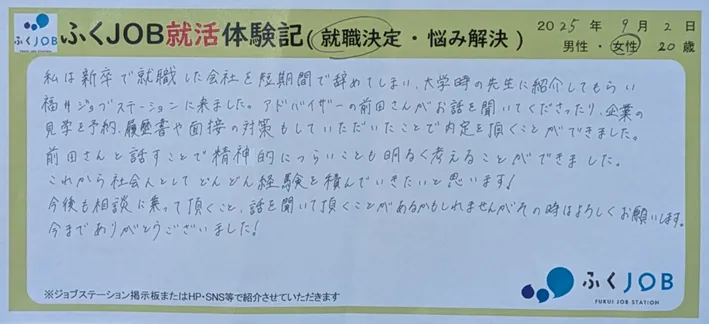 ふくJOB ふくJOB就活体験記(就職決定・悩み解決) 2025年 9月 2日
男性・女性 20歳
私は新卒で就職した会社を短期間で辞めてしまい、大学時の先生に紹介してもらい
福井ジョブステーションに来ました。アドバイザーの前田さんがお話を聞いてくださったり、企業の
見学を予約、履歴書や面接の対策もしていただいたことで内定を頂くことができました。
前田さんと話すことで精神的につらいことも明るく考えることができました。
これから社会人としてどんどん経験を積んでいきたいと思います!
今後も相談に乗って頂くこと、話を聞いて頂くことがあるかもしれませんがその時はよろしくお願いします。
今までありがとうございました!
ふくJOB
FUKUI JOB STATION
※ジョブステーション掲示板またはHP・SNS等で紹介させていただきます